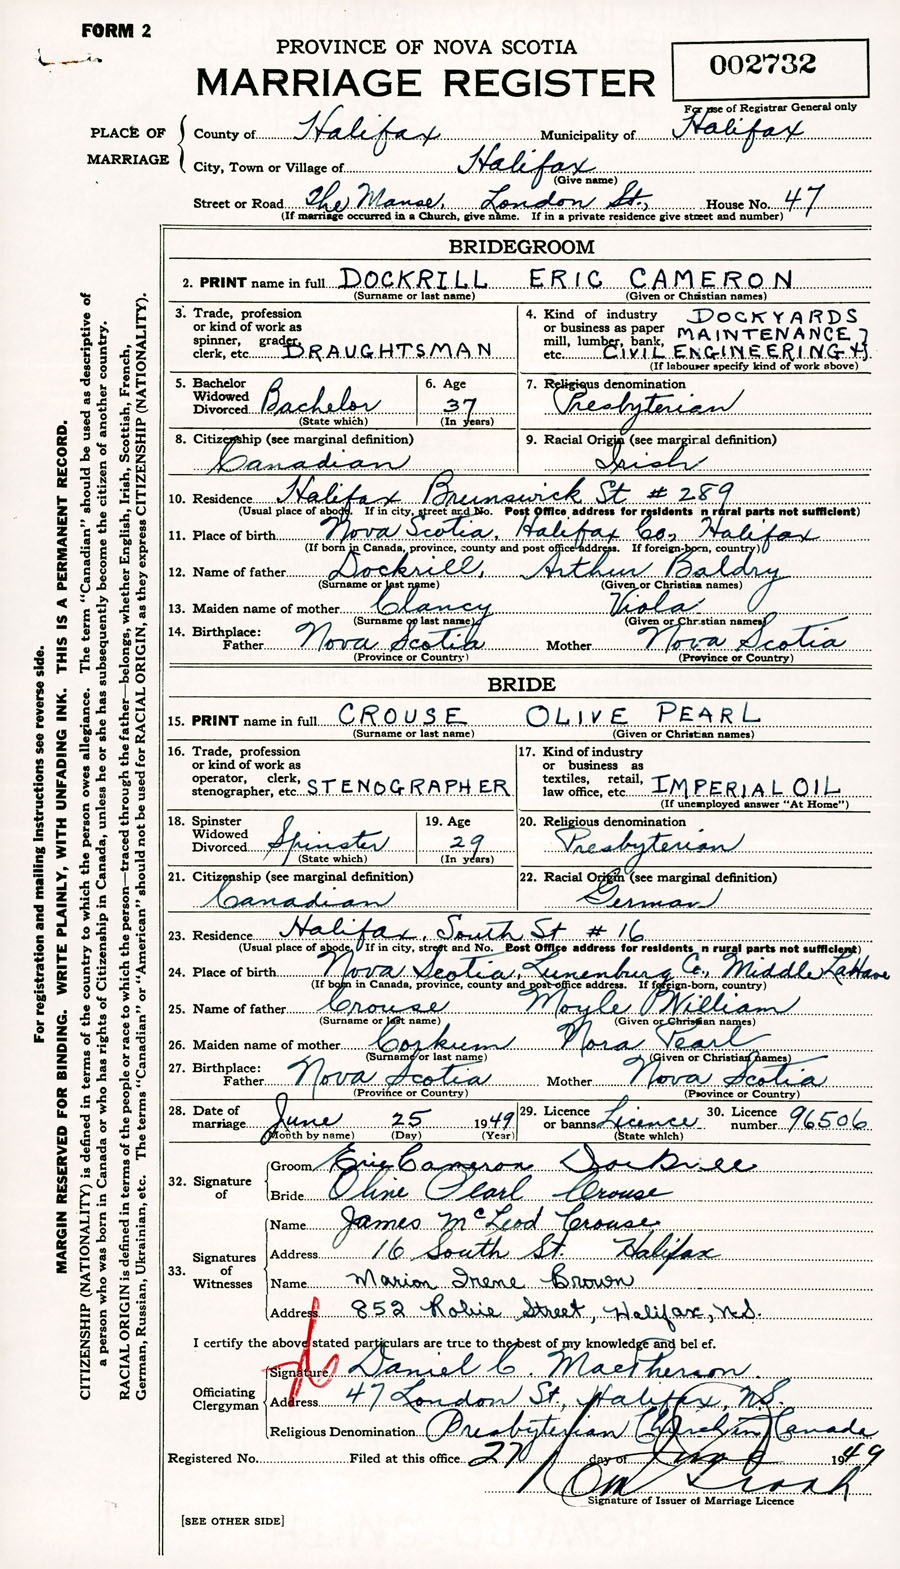 FORM 2
PROVINCE OF NOVA SCOTIA
MARRIAGE REGISTER
002732
For use of Registrar General only
PLACE OF MARRIAGE
County of Halifax Municipality of Halifax
City, Town or Village of Halifax
(Give name)
Street or Road The Manse, London St., House No. 47
(If marriage occurred in a Church, give name. If in a private residence give street and number)
BRIDEGROOM
2. PRINT name in full DOCKRILL ERIC CAMERON
(Surname or last name) (Given or Christian names)
3. Trade, profession or kind of work as spinner, grader, clerk, etc. DRAUGHTSMAN
4. Kind of industry or business as paper mill, lumber, bank, etc. DOCKYARDS MAINTENANCE CIVIL ENGINEERING
(If labourer specify kind of work above)
5. Bachelor Widowed Divorced Bachelor
(State which)
6. Age 37
(In years)
7. Religious denomination Presbyterian
8. Citizenship (see marginal definition) Canadian
9. Racial Origin (see marginal definition) Irish
10. Residence Halifax Brunswick St # 289
(Usual place of abode. If in city, street and No. Post Office address for residents n rural parts not sufficient)
11. Place of birth Nova Scotia, Halifax Co., Halifax
(If born in Canada, province, county and post office address. If foreign-born, country)
12. Name of father Dockrill, Arthur Baldry
(Surname or last name) (Given or Christian names)
13. Maiden name of mother Clancy Viola
(Surname or last name) (Given or Chr.stian names)
14. Birthplace: Father Nova Scotia Mother Nova Scotia
(Province or Country) (Province or Country)
BRIDE
15. PRINT name in full CROUSE OLIVE PEARL
(Surname or last name) (Given or Christian names)
16. Trade, profession or kind of work as operator, clerk, stenographer, etc. STENOGRAPHER
17. Kind of industry or business as textiles, retail, law office, etc. IMPERIAL OIL
(If unemployed answer "At Home")
18. Spinster Widowed Divorced Spinster
(State which)
19. Age 29
(In years)
20. Religious denomination Presbyterian
21. Citizenship (see marginal definition) Canadian
22. Racial Origin (see marginal definition) German
23. Residence Halifax, South St # 16
(Usual place of abode. If in city, street and No. Post Office address for residents n rural parts not sufficient)
24. Place of birth Nova Scotia, Lunenburg Co., Middle LaHave
(If born in Canada, province, county and post office address. If foreign-born, country)
25. Name of father Crouse Moyle William
(Surname or last name) (Given or Christian names)
26. Maiden name of mother Corkum Nora Pearl
(Surname or last name) (Given or Christian names)
27. Birthplace: Father Nova Scotia Mother Nova Scotia
(Province or Country) (Province or Country)
28. Date of marriage June 25 1949
(Month by name) (Day) (Year)
29. Licence or banns Licence
(State which)
30. Licence number 96506
32. Signature of
Groom Eric Cameron Dockrill
Bride Olive Pearl Crouse
33. Signatures of Witnesses
Name James McLeod Crouse
Address 16 South St. Halifax
Name Marion Irene Brown
Address 852 Robie Street, Halifax, N.S.
I certify the above stated particulars are true to the best of my knowledge and bel ef.
Officiating Clergyman
Signature Daniel C. MacPherson
Address 47 London St., Halifax, N.S.
Religious Denomination Presbyterian Church in Canada
Registered No. Filed at this office 27 day of June 1949
Signature of Issuer of Marriage Licence
[SEE OTHER SIDE]
For registration and mailing instructions see reverse side.
MARGIN RESERVED FOR BINDING. WRITE PLAINLY, WITH UNFADING INK. THIS IS A PERMANENT RECORD.
CITIZENSHIP (NATIONALITY) is defined in terms of the country to which the person owes allegiance. The term "Canadian" should be used as descriptive of
a person who was born in Canada or who has rights of Citizenship in Canada, unless he or she has subsequently become the citizen of another country.
RACIAL ORIGIN is defined in terms of the people or race to which the person—traced through the father—belongs, whether English, Irish, Scottish, French,
German, Russian, Ukrainian, etc. The terms "Canadian" or "American" should not be used for RACIAL ORIGIN, as they express CITIZENSHIP (NATIONALITY).